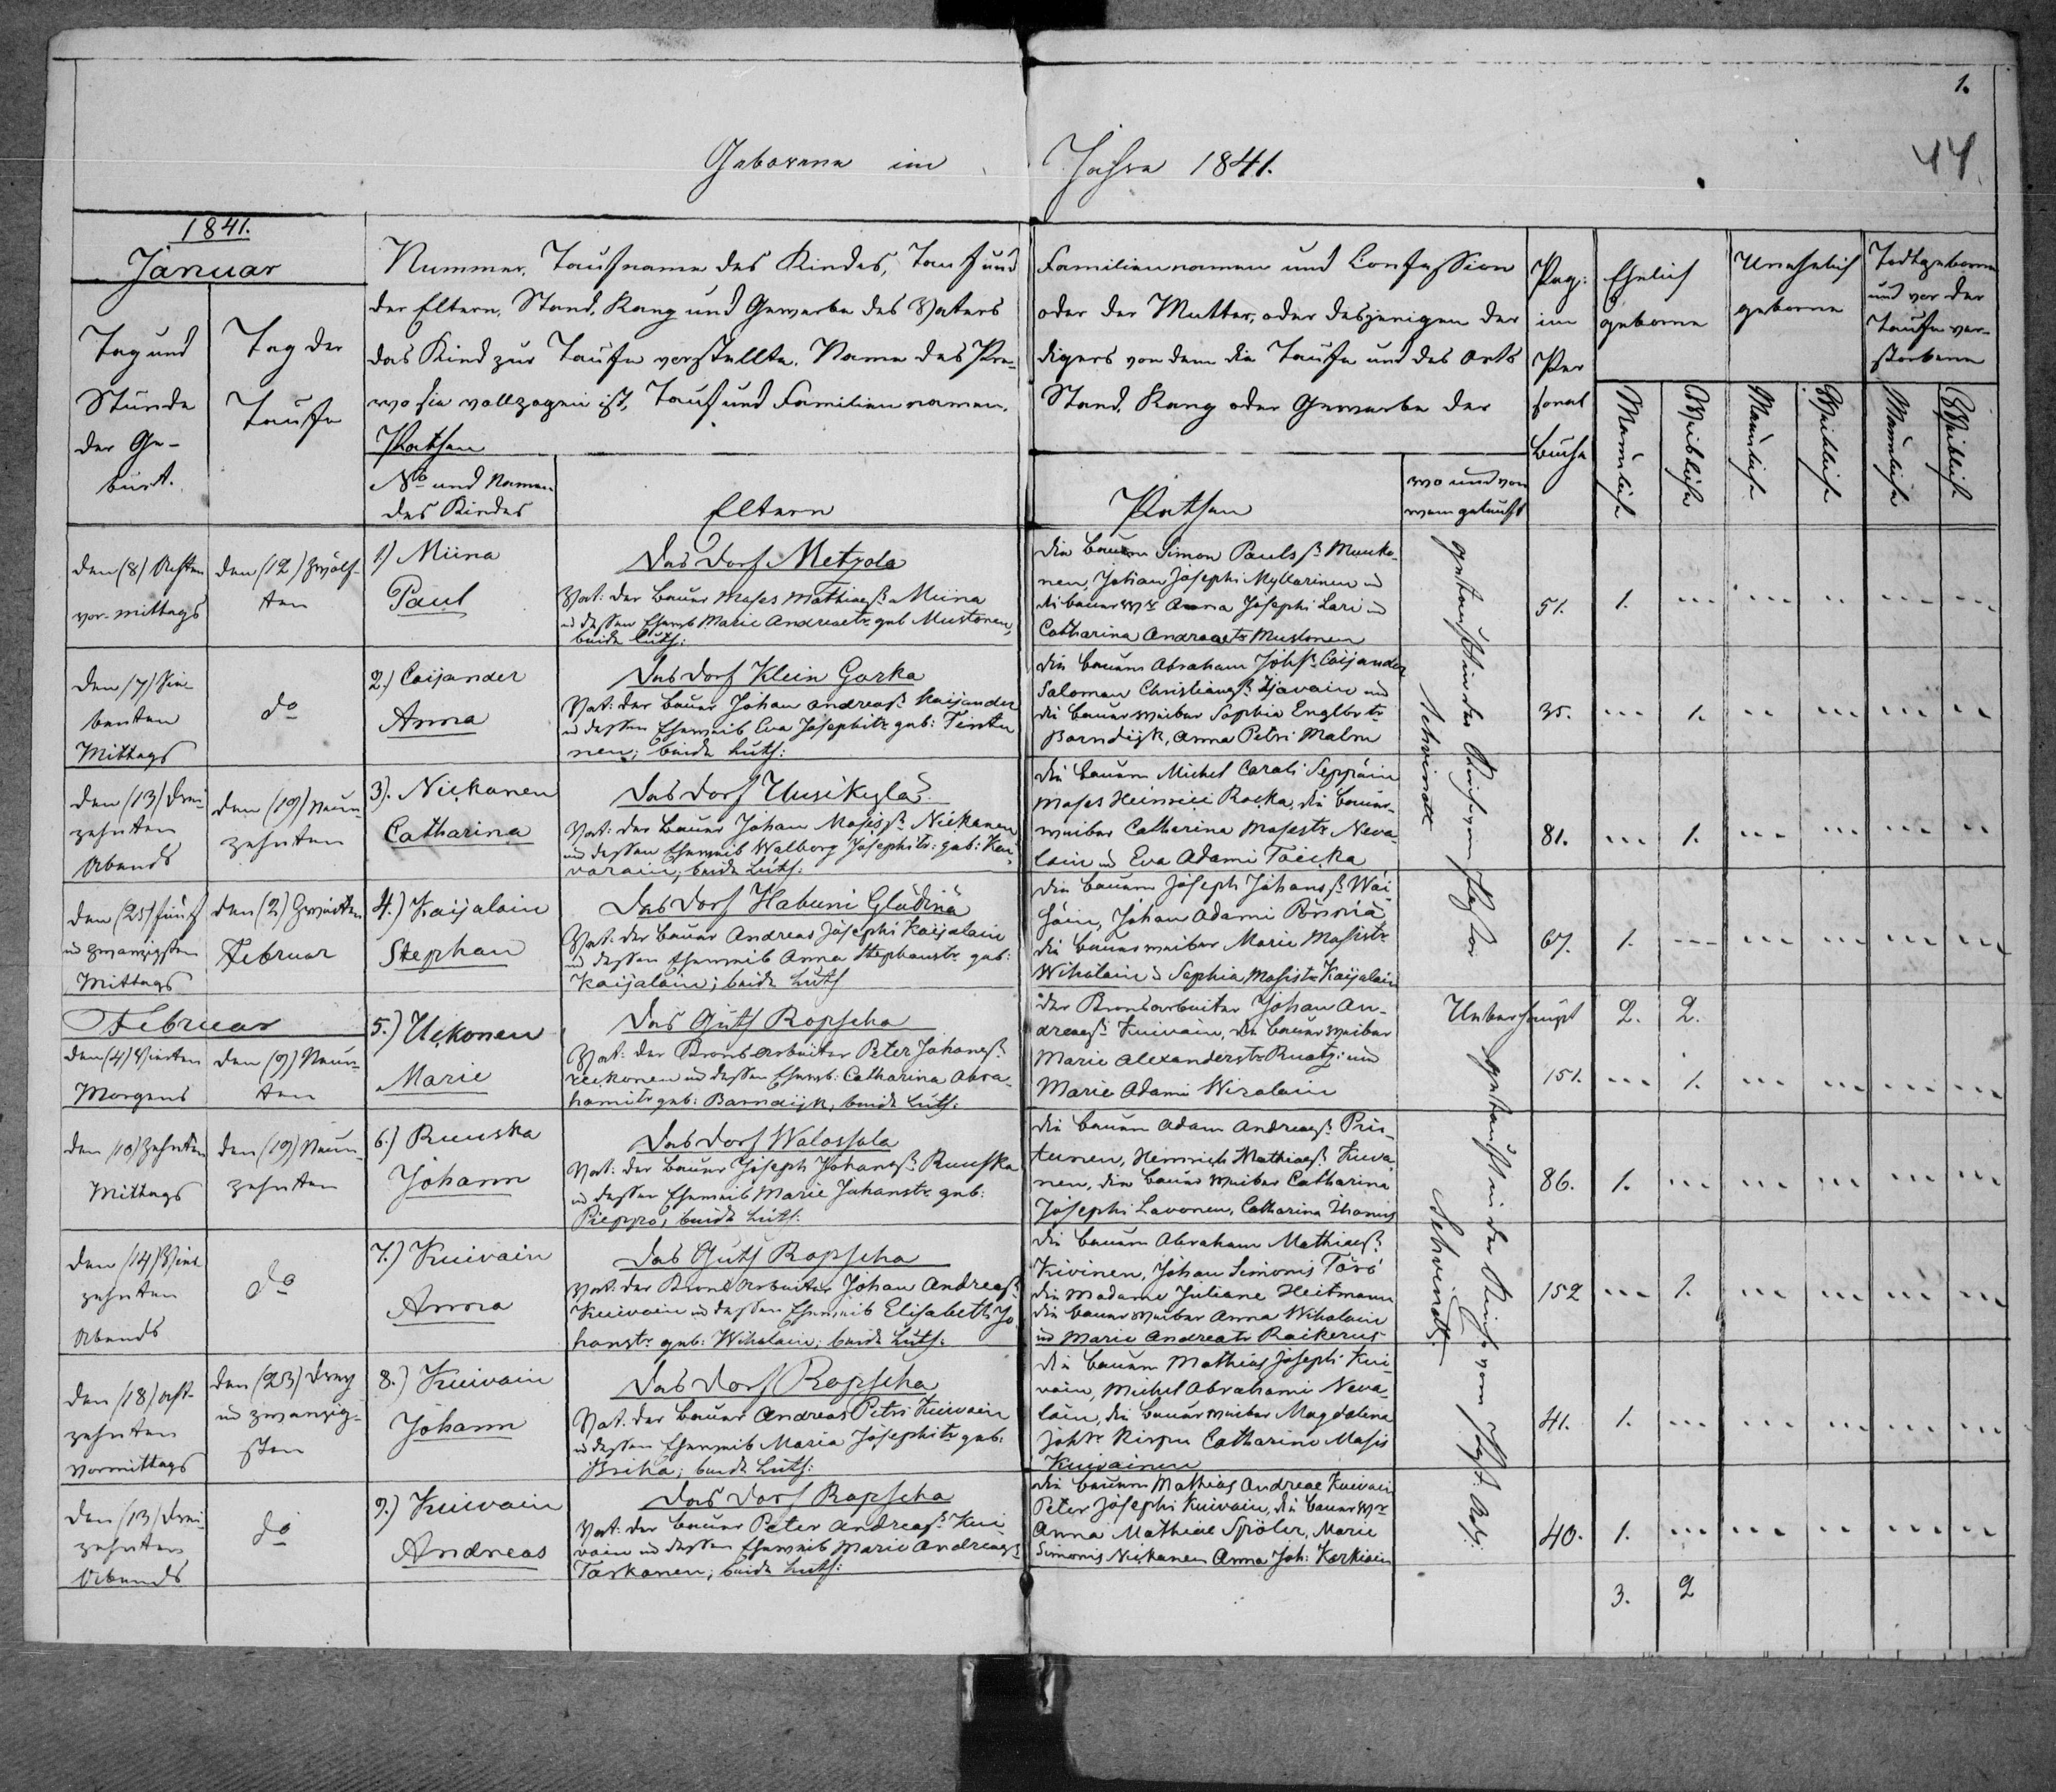 1.
44
Geborene im Jahre 1841.
1841.
Januar
Tag und
Stunde
der Ge-
burt.
Tag der
Taufe
Nummer, Taufname des Kindes, Tauf und Familiennamen und Confession
der Eltern, Stand, Rang und Gewerbe des Vaters oder der Mutter, oder desjenigen der
das Kind zur Taufe vorstellte. Name des Predigers von dem die Taufe und des Orts
wo sie vollzogen ist, Tauf und Familiennamen, Stand, Rang oder Gewerbe der
Pathen
No und Namen
des Kindes
Eltern
Pathen
wo und von
wem getauft
Pag:
im
Per
sonal
Buche
Ehelich
geborne
Unehelich
geborne
Todtgeborne
und vor der
Taufe ver-
storbene
Männliche
Weibliche
Männliche
Weibliche
Männliche
Weibliche
den (8) Achten
vor-mittags
den (12) zwölf-
ten
1.) Miina
Paul
Das Dorf Metzola
Vat: der Bauer Moses Mathiaß. Miina
u dessen Ehewb Marie Andreaetr. geb Mustonen,
beide Luth:
die Bauern Simon Pauls ß. Muuko-
nen, Johan Josephi Myllarinen u
di bauerwr Anna Josephi Lari u
Catharina Andreaetr Mustonen
51. 1.
den (7) Sie
benten
Mittags
do
2.) Caijander
Anna
Das Dorf Klein Gorka
Vat: der Bauer Johan Andreaß. Kaijander
u dessen Eheweib Eva Josephitr geb: Tirttu
nen; beide Luth:
die Bauern Abraham Johß. Caijander
Saloman Christianß. Ijavain und
die bauerweiber Sophia Englbrtr
Barndijk, Anna Petri Malm
35. 1.
den (13) Drei-
zehnten
Abends
den (19) Neun-
zehnten
3.) Nickanen
Catharina
Das Dorf Uusikyla
Vat: der Bauer Johan Mosisß. Nickanen
und dessen Eheweib Walborg Josephitr: geb: Kau
varain; beide Luth:
die Bauern Michel Caroli Seppäin
Moses Heinrici Rocka, die bauer-
weiber Catharina Mosestr Neva-
lain u Eva Adami Toicka
81. 1.
den (25) fünf
u zwanzigsten
Mittags
den (2) Zweiten
Februar
4.) Kaijalain
Stephan
Das Dorf Habuni Glädinä
Vat: der Bauer Andreas Josephi Kaijalain
u dessen Eheweib Anna Stephanstr geb:
Kaijalain; beide Luth
die Bauern Joseph Johansß. Wäi
säin, Johan Adami Pönniä
die bauerweiber Marie Mosistr
Wihalain u Sophia Mosistr Kaijalain
67. 1.
getauft in der Kirche vom Pastor
Schvindt
Ueberhaupt 2. 2.
Februar
den (4) Vierten
Morgens
den (9) Neun-
ten
5.) Uckonen
Marie
Das Guth Ropscha
Vat: der Kronsarbeiter Peter Johanß.
Uckonen u dessen Ehewb: Catharina Abra-
hamitr geb: Barndijk, beide Luth:
der Kronsarbeiter Johan An-
dreaß. Kuivain, die bauerweiber
Marie Alexanderstr Ruotzi und
Marie Adami Wirolain
151. 1.
den (10) Zehnten
Mittags
den (19) Neun-
zehnten
6.) Ruuska
Johann
Das Dorf Walossola
Vat: der Bauer Joseph Johanß. Ruuska
u dessen Eheweib Marie Johanstr geb:
Pieppo; beide Luth:
die Bauern Adam Andreaß. Pru-
tunen, Heinrich Mathiaß. Kuva-
nen, die bauerweiber Catharina
Josephi Lavonen, Catharina Thomis
86. 1.
den (14) Vier
zehnten
Abends
do
7.) Kuivain
Anna
Das Guth Ropscha
Vat. der Kronsarbeiter Johan Andreaß.
Kuivain u dessen Eheweib Elisabeth Jo
hanstr geb: Wihalain; beide Luth:
die Bauern Abraham Mathiaß.
Kivinen, Johan Simonis Törö
die Madame Juliane Heitmann
die bauerweiber Anna Wihalain
u Marie Andreaetr Raikerus
152 1.
den (18) Acht-
zehnten
Vormittags
den (23) Drey
u zwanzig-
sten
8.) Kuivain
Johann
Das Dorf Ropscha
Vat. der Bauer Andreas Petri Kuivain
u dessen Eheweib Maria Josephitr geb:
Briha; beide Luth:
die Bauern Mathias Josephi Kui
vain, Michel Abrahami Neva-
lain, die bauerweiber Magdalena
Johtr Kirpu Catharina Mosis
Kuivainen
41. 1.
den (13) Drei-
zehnten
Abends
do
9.) Kuivain
Andreas
Das Dorf Ropscha
Vat: der Bauer Peter Andreaß. Kui
vain u dessen Eheweib Marie Andreaß.
Torkanen; beide Luth:
die Bauern Mathias Andreae Kuivain
Peter Josephi Kuivain, die bauerwr
Anna Mathiae Spöler, Marie
Simonis Nickanen Anna Joh: Korkiain
40. 1.
getauft in der Kirche vom Past. Adj:
Schvindt.
3. 2